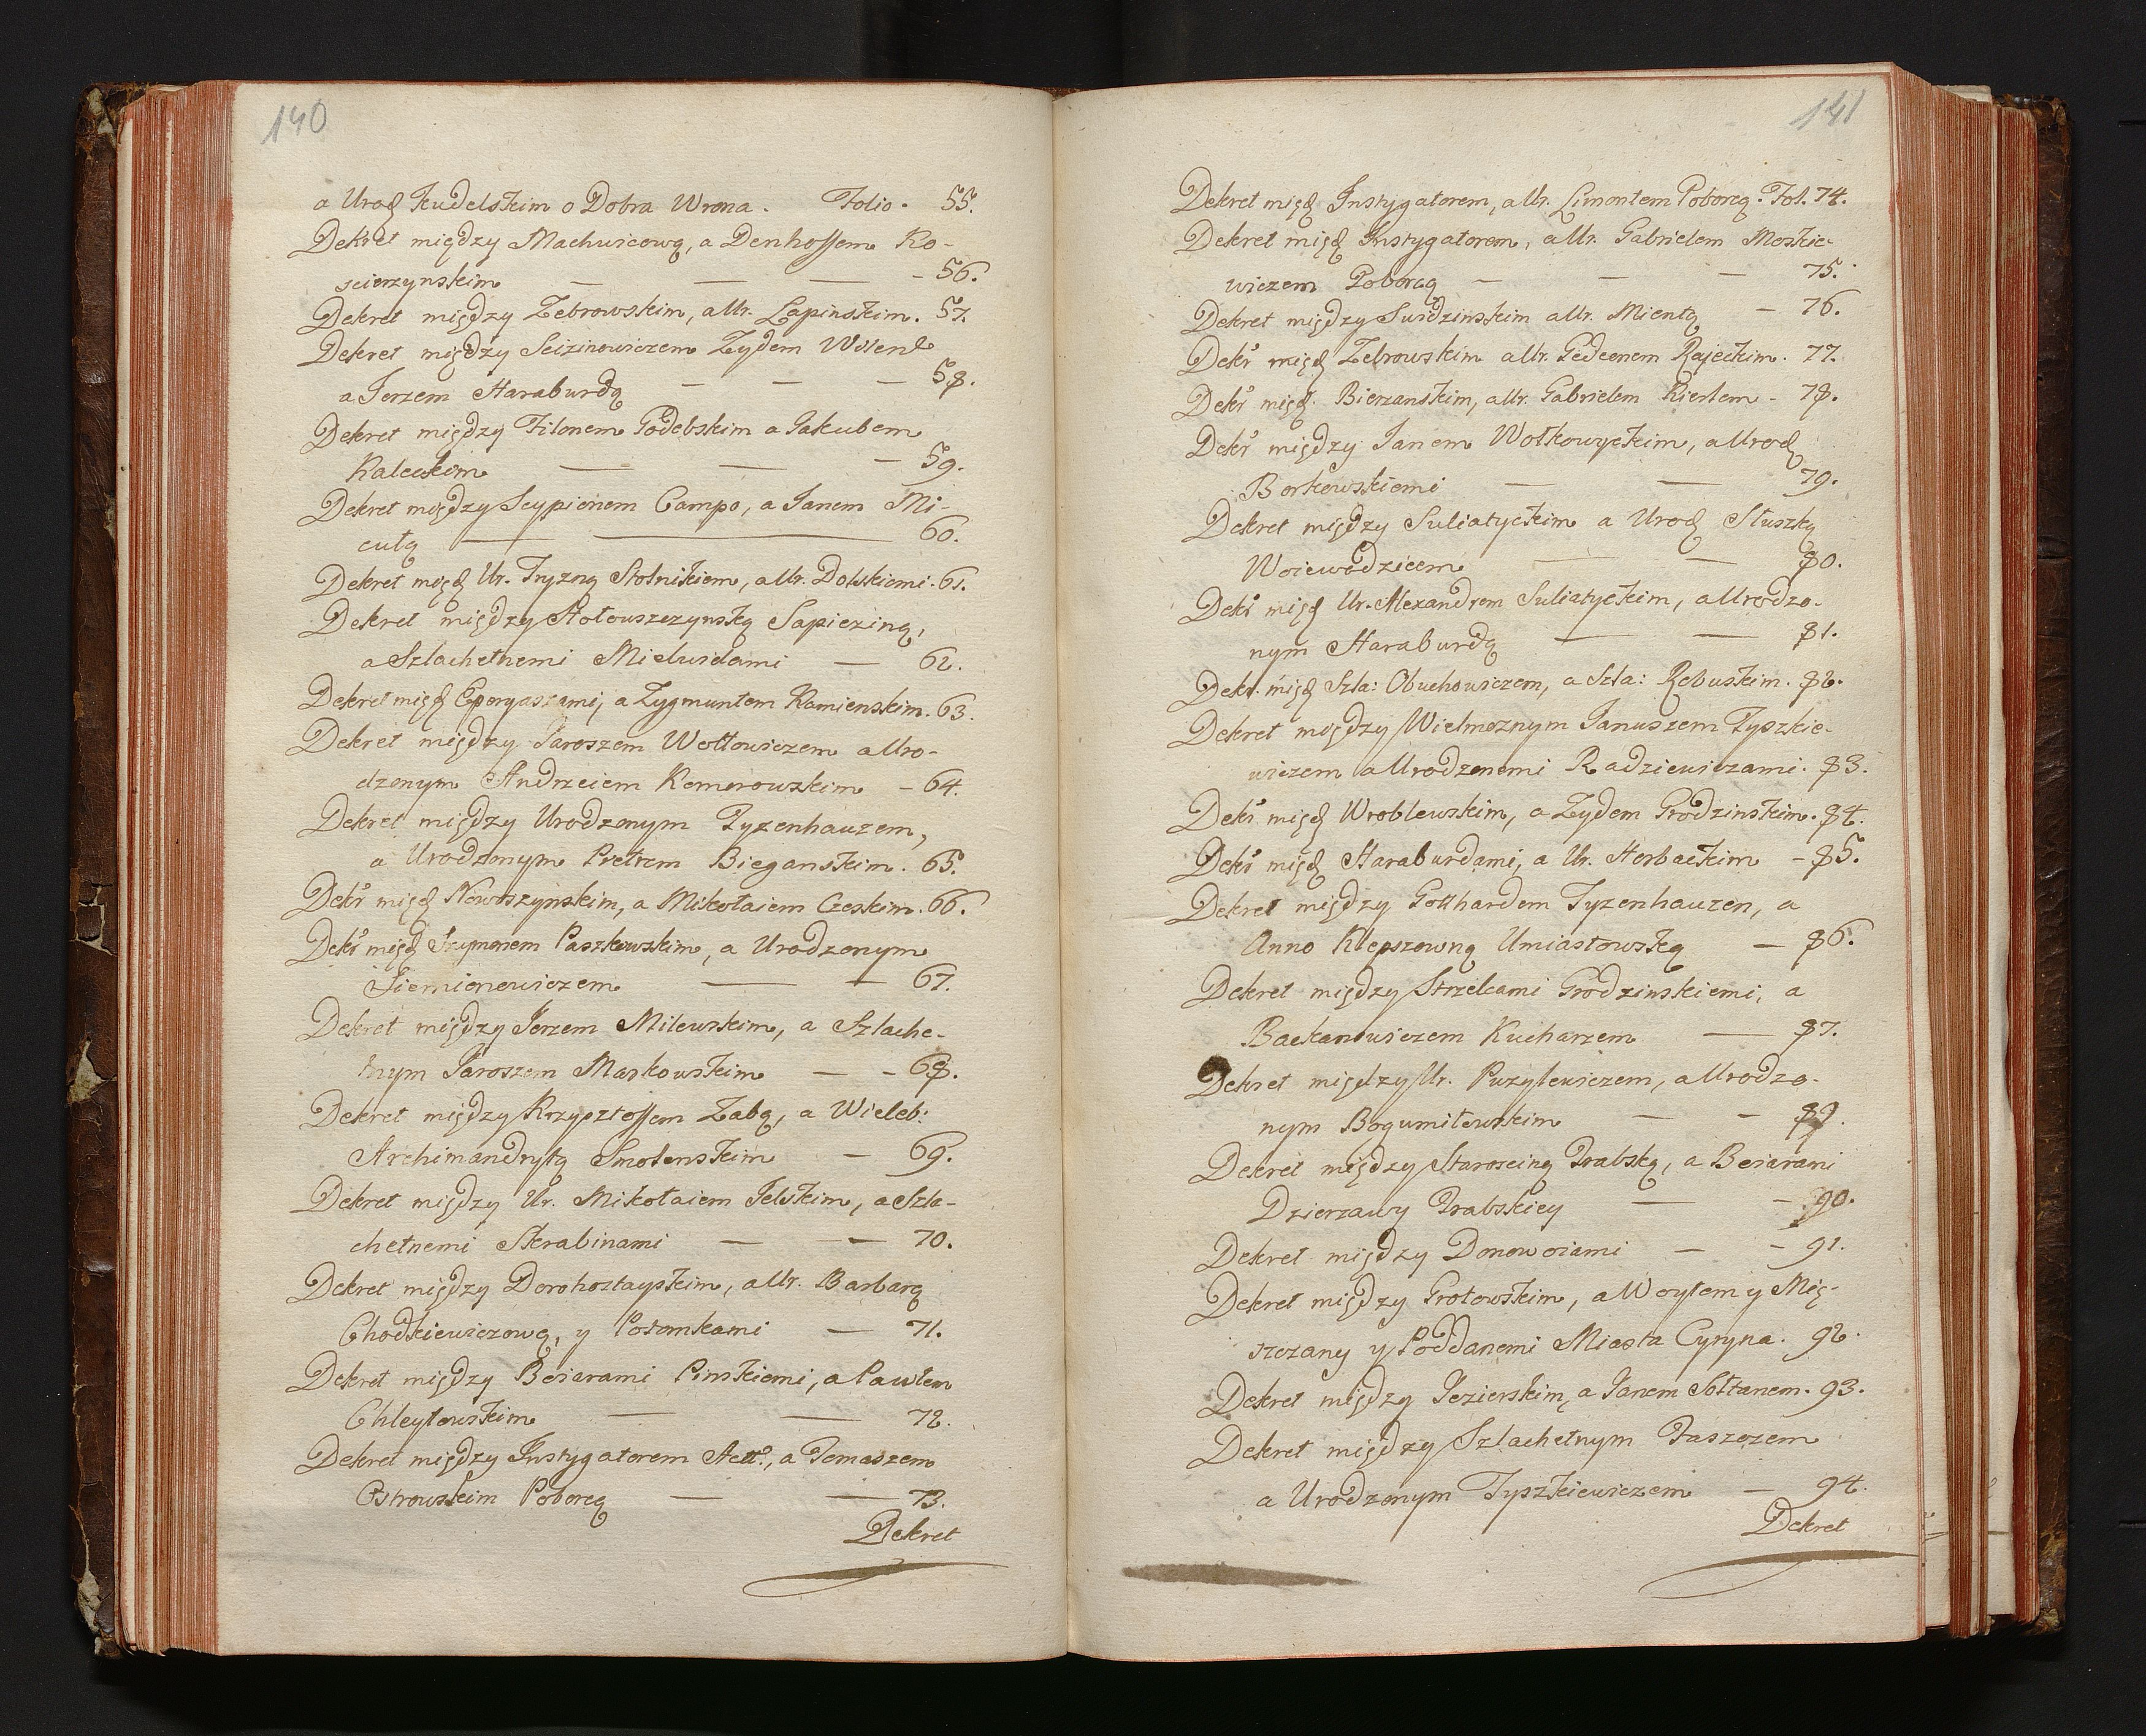 140
a Urodz Kudelskim o Dobra Wrona. Folio. 55.
Dekret między Machwicową, a Denhoffem Ko-
scierzynskim — — — 56.
Dekret między Zebrowskim, a Ur. Łapinskim. 57.
Dekret między Scizinowiczem Zydem Wilenl
a Jerzem Haraburdą — — — 58.
Dekret między Filonem Godebskim a Jakubem
Kaleckim — — — 59.
Dekret między Scypionem Campo, a Janem Mi-
cutą — — 60.
Dekret międz Ur. Tryzną Stolnikiem, a Ur. Dolskiemi. 61.
Dekret między Hołowszczynską Sapiezing,
a Szlachetnemi Mielwidami — 62.
Dekret międz Eperyaszami, a Zygmuntem Kamienskim. 63.
Dekret między Jaroszem Wołłowiczem a Uro-
dzonym Andrzeiem Komorowskim — 64.
Dekret między Urodzonym Tyzenhauzem,
a Urodzonym Piotrem Bieganskim. 65.
Dekr międz Nowoszynskim, a Mikołaiem Czeskim. 66.
Dekr międz Szymonem Paszkowskim, a Urodzonym
Siemionowiczem — — 67.
Dekret między Jerzem Milewskim, a Szlache-
tnym Jaroszem Maskowskim — - 68.
Dekret między Krzysztoffem Zabą, a Wieleb:
Archimandrytą Smolenskim — 69.
Dekret między Ur. Mikołaiem Jelskim, a Szla-
chetnemi Skrabinami — — 70.
Dekret między Dorohostayskim, a Ur. Barbarą
Chodkiewiczową, y Potomkami — 71.
Dekret między Boiarami Pinskiemi, a Pawłem
Chleytowskim — — 72.
Dekret między Instygatorem Actt., a Tomaszem
Ostrowskim Poborcą — — 73.
Dekret
141
Dekret międz Instygatorem, a Ur. Limontem Poborcą. Fol. 74.
Dekret międz Instygatorem, a Ur. Gabrielem Moskie-
wiczem Poborcą — — — 75.
Dekret między Surdzinskim a Ur. Mientą — 76.
Dekr międz Zebrowskim a Ur. Gedeonem Rajeckim. 77.
Dekr międz. Bierzanskim, a Ur. Gabrielem Kierlem - 78.
Dekr między Janem Wołkowyckim, a Urodz
Borkowskiemi — — 79.
Dekret między Suliatyckim a Urodz Słuszką
Woiewodzicem — — 80.
Dekr międz Ur. Alexandrem Suliatyckim, a Urodzo-
nym Haraburdą — — 81.
Dekr. międz Szla: Obuchowiczem, a Szla: Rebuskim. 82.
Dekret między Wielmoznym Januszem Tyszkie-
wiczem a Urodzonemi Radziewiczami. 83.
Dekr międz Wroblewskim, a Zydem Grodzinskim. 84.
Dekr międz Haraburdami, a Ur. Horbackim - 85.
Dekret między Gotthardem Tyzenhauzen, a
Anno Klepszowną Umiastowską — 86.
Dekret między Strzelcami Grodzinskiemi, a
Backanowiczem Kucharzem — 87.
Dekret między Ur. Puzylewiczem, a Urodzo-
nym Bogumiłowskim — - 89.
Dekret między Starościną Trabską, a Boiarami
Dzierzawy Trabskiey — - 90.
Dekret między Donowoiami — - 91.
Dekret między Grotowskim, a Woytem y Mię-
szczany y Poddanemi Miasta Cyryna. 92.
Dekret między Jezierskim, a Janem Sołtanem. 93.
Dekret między Szlachetnym Taszczem
a Urodzonym Tyszkiewiczem — 94.
Dekret